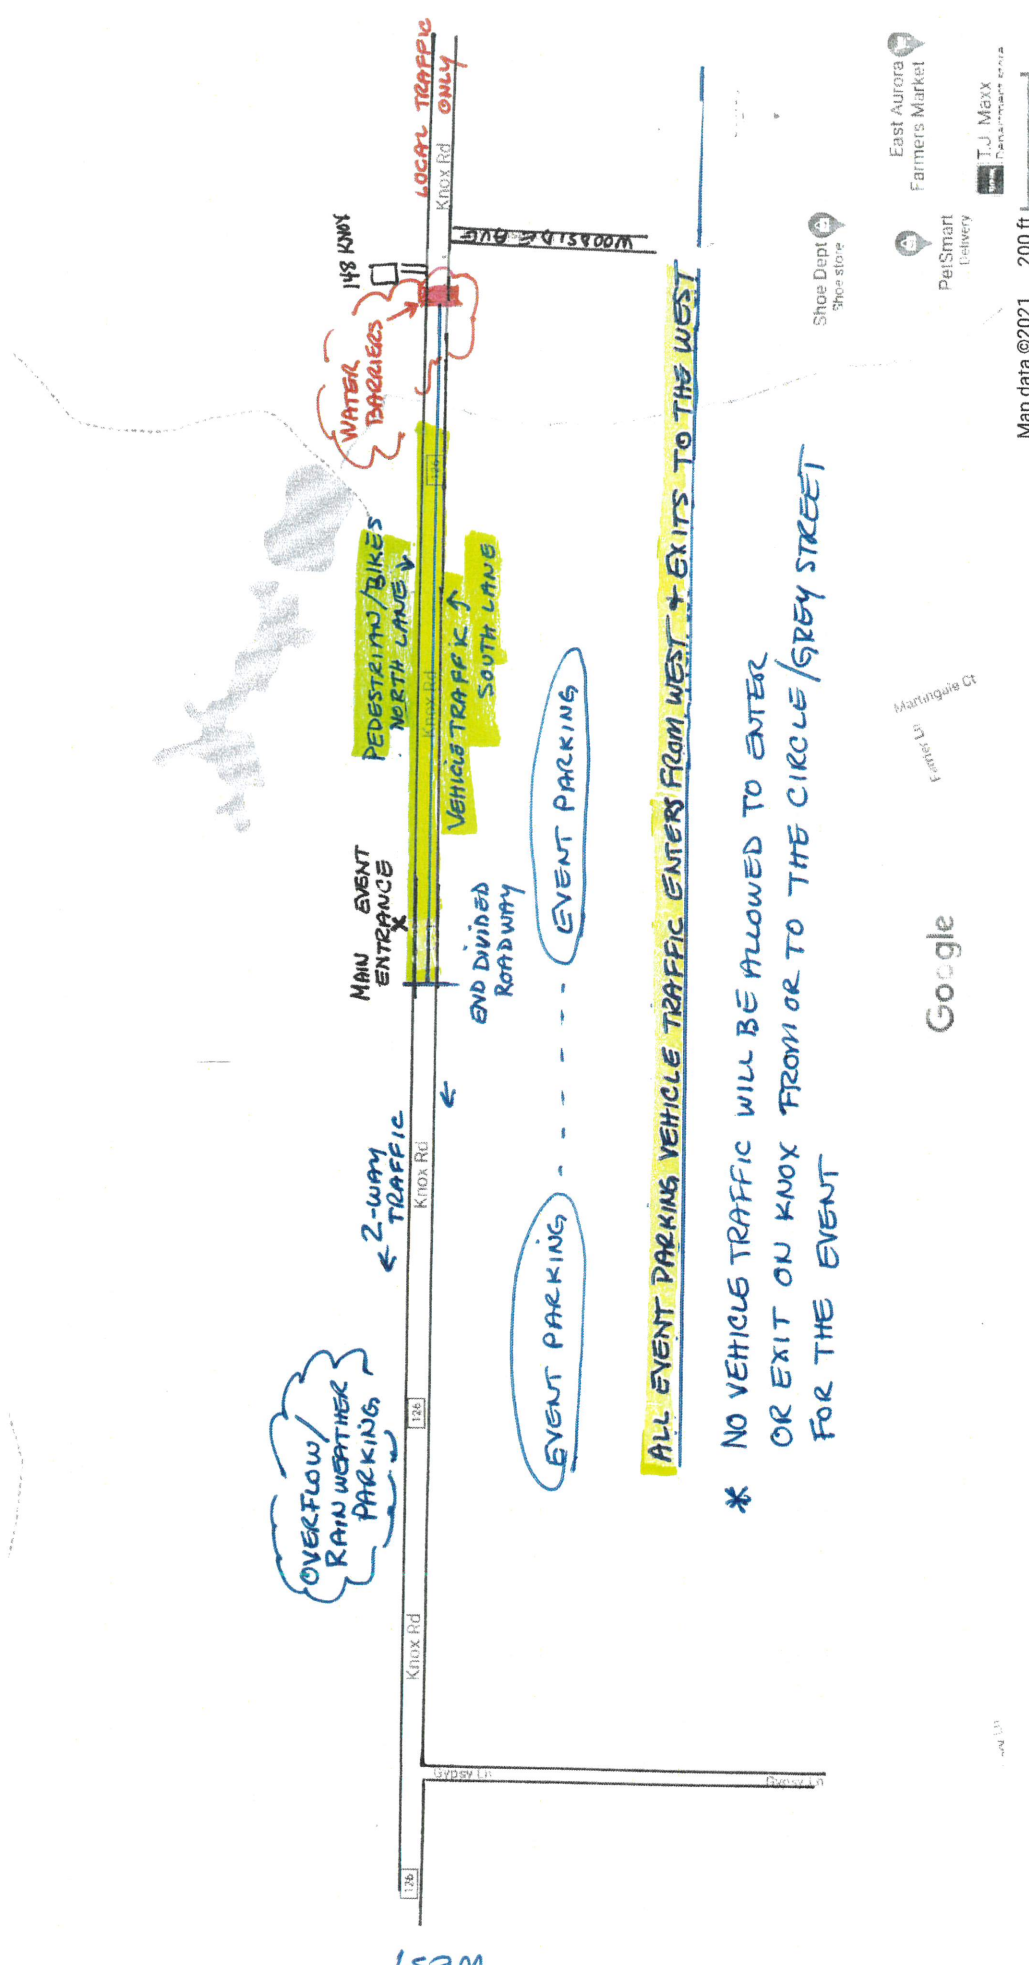 LOCAL TRAFFIC
ONLY
Knox Rd
148 KNOX
WOODSIDE AVE
WATER
BARRIERS
126
PEDESTRIAN/BIKES
NORTH LANE
Knox Rd
VEHICLE TRAFFIC
SOUTH LANE
MAIN EVENT
ENTRANCE
X
END DIVIDED
ROADWAY
2-WAY
TRAFFIC
Knox Rd
OVERFLOW/
RAIN WEATHER
PARKING
126
Knox Rd
126
Gypsy Ln
Gypsy Ln
EVENT PARKING - - - - - EVENT PARKING
ALL EVENT PARKING VEHICLE TRAFFIC ENTERS FROM WEST + EXITS TO THE WEST
* NO VEHICLE TRAFFIC WILL BE ALLOWED TO ENTER
OR EXIT ON KNOX FROM OR TO THE CIRCLE/GREY STREET
FOR THE EVENT
Shoe Dept
Shoe store
East Aurora
Farmers Market
PetSmart
Delivery
T.J. Maxx
Department store
Martingale Ct
Farrier Ln
Google
Map data ©2021
200 ft